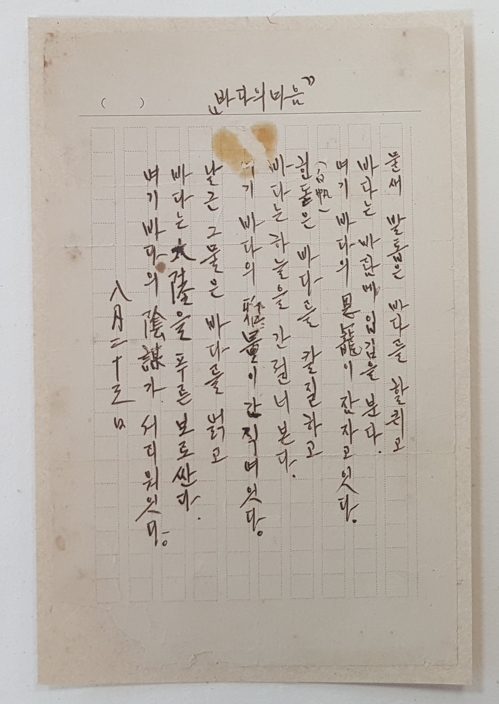 ( ) „바다의 마음”
물새 발톱은 바다를 할퀴고
바다는 바람에 입김을 분다.
여기 바다의 恩寵이 잠자고잇다.
흰돛(白帆)은 바다를 칼질하고
바다는 하늘을 간질너본다.
여기 바다의 雅量이 간직여잇다.
날근 그물은 바다를 얽고
바다는 大陸을 푸른 보로싼다.
여기 바다의 陰謀가 서리워잇다。
八月二十三日